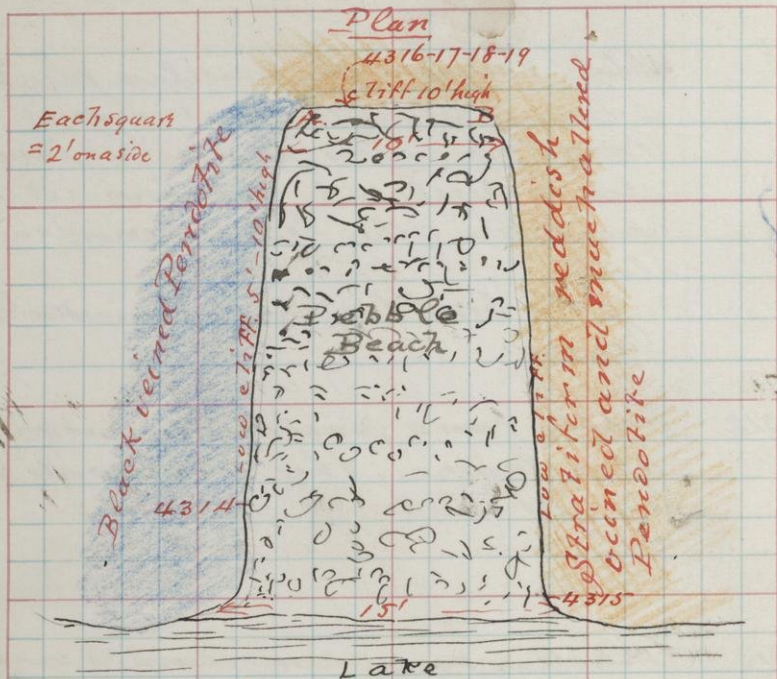 Plan
4316-17-18-19
Cliff 10' high
Each square
= 2' on a side
A
B
10'
Black veined Peridotite
Low cliff 5'-10' high
Pebble
Beach
Low cliff
Stratiform reddish
veined and much altered
Peridotite
4314
15'
4315
Lake